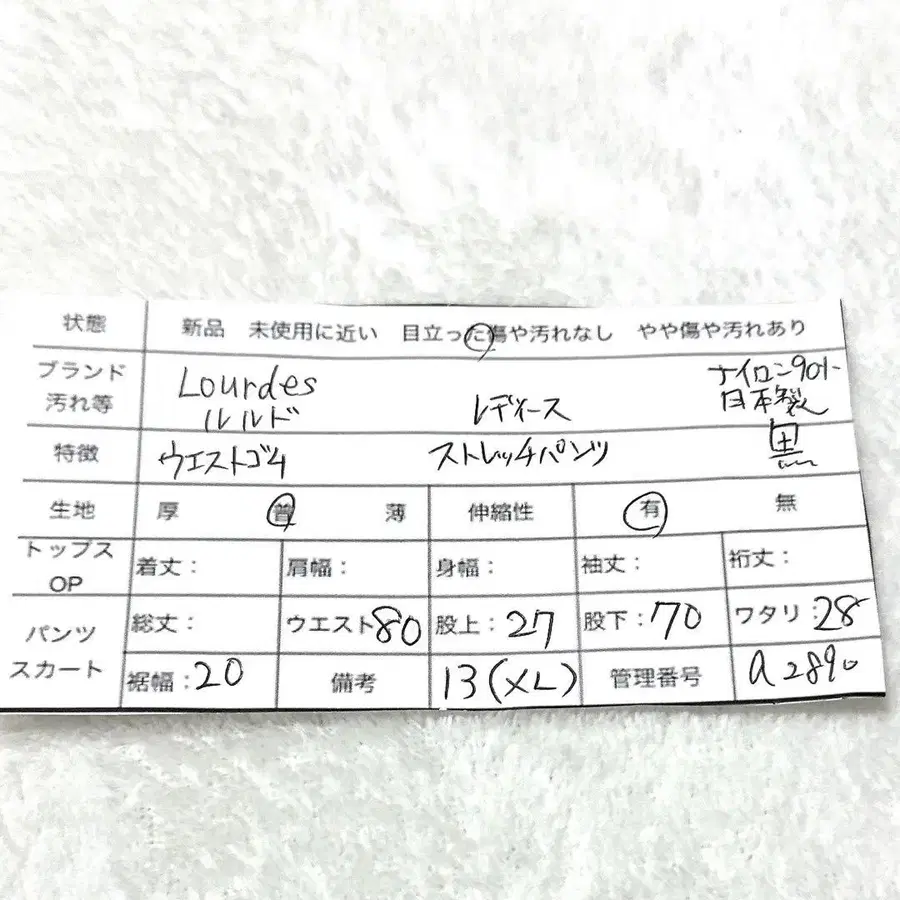 状態 新品 未使用に近い 目立った傷や汚れなし やや傷や汚れあり
ブランド 汚れ等 Lourdes ルルド レディース ナイロン90% 日本製
特徴 ウエストゴム ストレッチパンツ 黒
生地 厚 普 薄 伸縮性 有 無
トップス OP 着丈: 肩幅: 身幅: 袖丈: 裄丈:
パンツ スカート 総丈: ウエスト80 股上:27 股下:70 ワタリ:28
裾幅:20 備考 13(XL) 管理番号 a2890